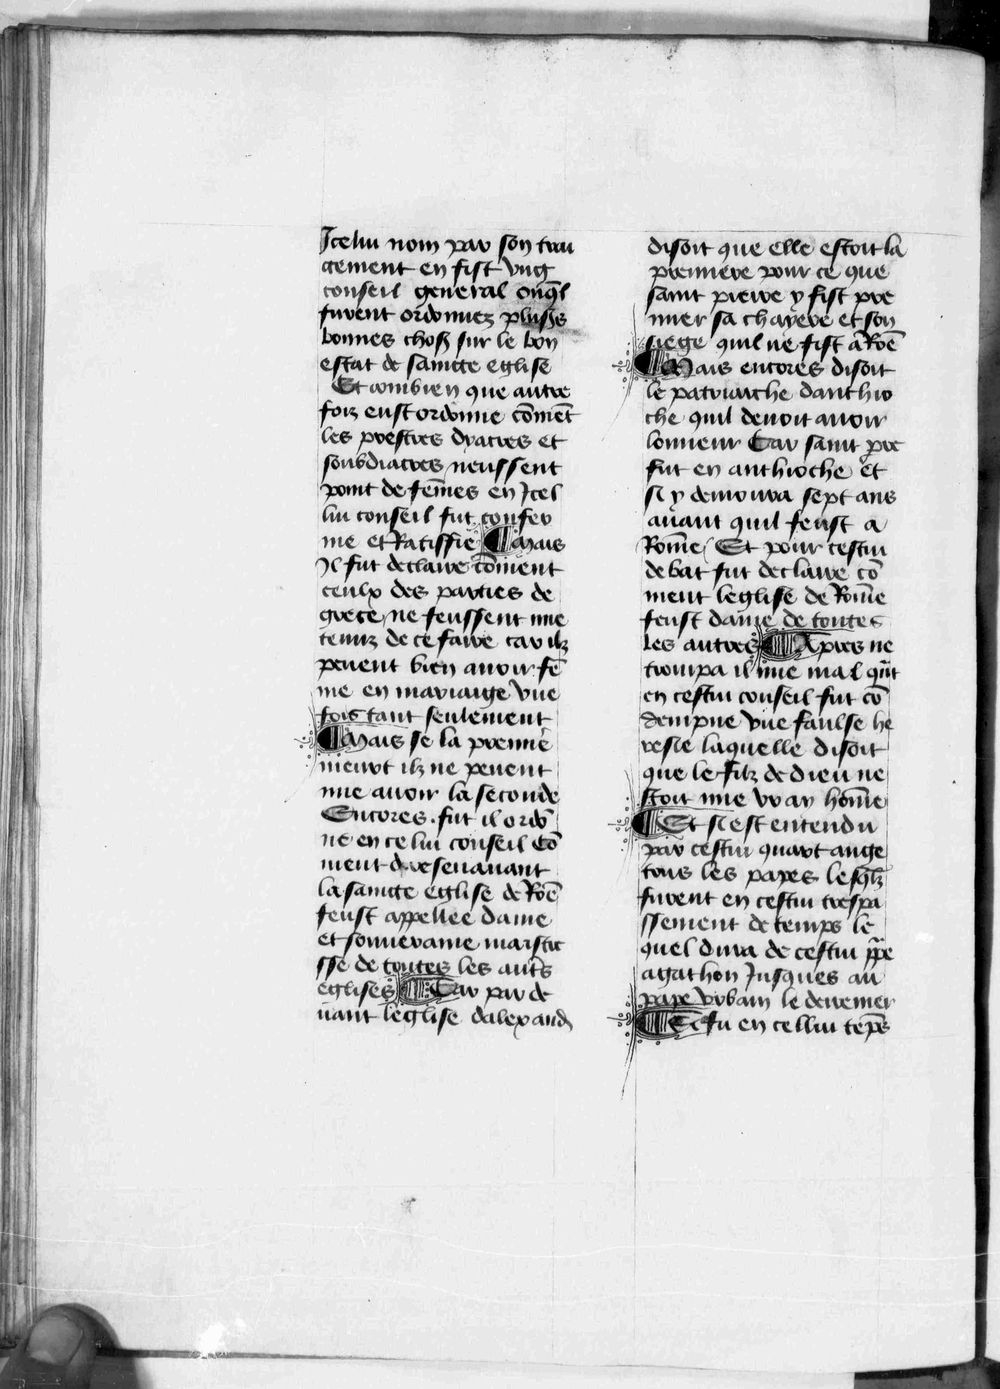 Icelui nom par son trai
ctement en fist vng
conseil general onq̄l
furent ordonnez plus̄s
bonnes chos̄ sur le bon
estat de saincte eglise
Et combien que autre
foiz eust ordonne cōmēt
les prestres dyacres et
soubdiacres neussent
point de fēmes en Icel
lui conseil fut confer
me et Ratiffie ¶ Mais
Il fut declaire cōment
ceulx des parties de
grece ne feussent mie
tenuz de ce faire car ilz
peuent bien auoir fē
me en mariaige vne
fois tant seulement
¶ Mais se la premiē
meurt ilz ne peuent
mie auoir la seconde
Encores fut il ordō
ne en celui conseil cō
ment doresenauant
la saincte eglise de Rōē
feust appellee dame
et souueraine maistre
sse de toutes les aut̄s
eglises ¶ Car par de
uant leglise dalexand
disoit que elle estoit la
premiere pour ce que
saint pierre y fist pre
mier sa chayere et son
siege quil ne fist a Rōē
¶ Mais encores disoit
le patriarche danthio
che quil deuoit auoir
lonneur Car saint p̄re
fut en anthioche Et
si y demoura sept ans
auant quil feust a
Rōme / Et pour cestui
debat fut declaire cō
ment leglise de Rōme
feust dame de toutes
les autres ¶ Apres ne
trompa il mie mal q̄nt
en cestui conseil fut cō
dempne vne faulse he
resie laquelle disoit
que le filz de dieu ne
stoit mie vray hōme
¶ Et si est entendu
par cestui quart ange
tous les papes lesq̄lz
furent en cestui trespa
ssement de temps le
quel dura de cestui p̄pe
agathon Jusques au
pape vrbain le derrenier
¶ Et fu en cellui tēps